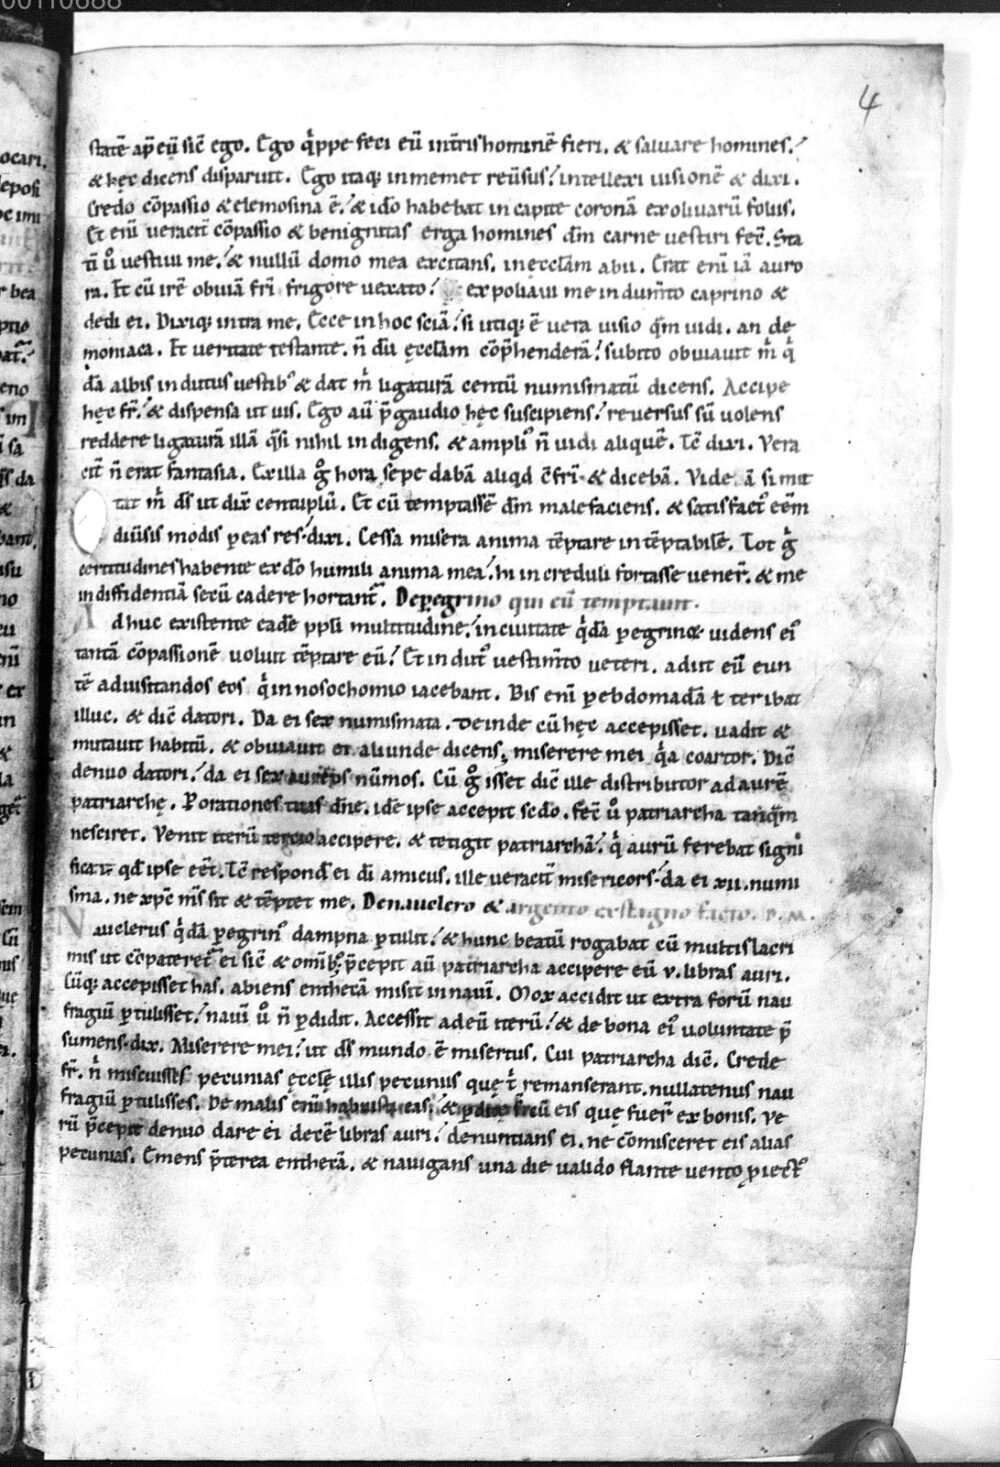 4
statē ap̄ eū sic̄ ego. Ego q̓ppe feci eū int̄ris hominē fieri. & saluare homines.
& hęc dicens disparuit. Ego itaq; in memet reūsus intellexi uisionē & dixi.
Credo cōpassio & elemosina ē. & iđo habebat in capite coronā ex oliuarū foliis.
Et enī ueracit̄ cōpassio & benignitas erga homines dn̄m carne uestiri fec̄. Sta
ti uͦ uestiui me. & nullū domo mea excitans. in ęccl̄am abii. Erat enī iā auro
ra. Et cū irē obuiā fr̄i frigore uexato expoliaui me indum̄to caprino &
dedi ei. Dixiq; intra me. Ecce in hoc sciā si utiq; ē uera uisio qm̄ uidi. an de
moniaca. Et ueritate testante. n̄ dū ęccl̄am cōp̄henderā subito obuiauit m̓ q̓
dā albis indutus uestib; & dat m̓ ligaturā centū numismatū dicens. Accipe
hęc fr̄. & dispensa ut uis. Ego aū p̄ gaudio hęc suscipiens reuersus sū uolens
reddere ligaturā illā q̓si nihil indigens. & ampli᾽ n̄ uidi aliquē. Tc̄ dixi. Vera
cit̄ n̄ erat fantasia. Ex illa gͦ hora sepe dabā aliqd c̄fr̄i & dicebā. Vide ā si mit
tat m̓ ds̄ ut dix̄ centuplū. Et cū temptassē dn̄m malefaciens. & satisfact᾽ eēm
diūsis modis p eas res dixi. Cessa misera anima tēptare intēptabilē. Tot gͦ
certitudines habente ex do humili anima mea hi increduli fortasse uener̄. & me
in diffidentiā secū cadere hortant̄. De peregrino qui eū temptauit.
Adhuc existente eadē pp̄li multitudine in ciuitate q̓dā pegrinus uidens ei᾽
tantā cōpassionē uoluit tēptare eū. Et indut᾽ uestim̄to ueteri. adiit eū eun
tē ad uisitandos eos q̓ in nosochomio iacebant. Bis enī p ebdomadā ł ter ibat
illuc. & dic̄ datori. Da ei sex numismata. Deinde cū hęc accepisset. uadit &
mutauit habitū. & obuiauit ei aliunde dicens miserere mei q̓a coartor. Dic̄
denuo datori da ei sex aureos nūmos. Cū gͦ isset dic̄ ille distributor ad aurē
patriarchę. Porationes tuas dn̄e. idē ipse accepit scđo. Fec̄ uͦ patriarcha tanq̄m
nesciret. Venit iterū tercio accipere. & tetigit patriarchā q̓ aurū ferebat signi
ficans qđ ipse eēt. Tc̄ respond ei dī amicus. ille ueracit̄ misericors da ei xii. numi
sma. ne xp̄c m̄s sit & tēptet me. De nauclero & argento ex stagno facto.
Nauclerus q̓dā pegrin᾽ dampna ptulit & hunc beatū rogabat cū multis lacri
mis ut cōpateret̄ ei sic̄ & omīb; p̄cepit aū patriarcha accipere eū v. libras auri.
Cūq; accepisset has. abiens enthecā misit in nauī. Mox accidit ut extra forū nau
fragiū ptulisset nauī uͦ n̄ pdidit. Accessit ad eū iterū & de bona ei᾽ uoluntate p̄
sumens dix̄. Miserere mei ut ds̄ mundo ē misertus. Cui patriarcha dic̄. Crede
fr̄. n̓ miscuisses pecunias ęcclę illis pecuniis quę t̓ remanserant. nullatenus nau
fragiū ptulisses. De malis enī habuisti eas, & eis quę fuer̄ ex bonis. Ve
rū p̄cepit denuo dare ei decē libras auri denuntians ei. ne cōmisceret eis alias
pecunias. Emens p̄terea enthecā. & nauigans una die ualido flante uento piect᾽